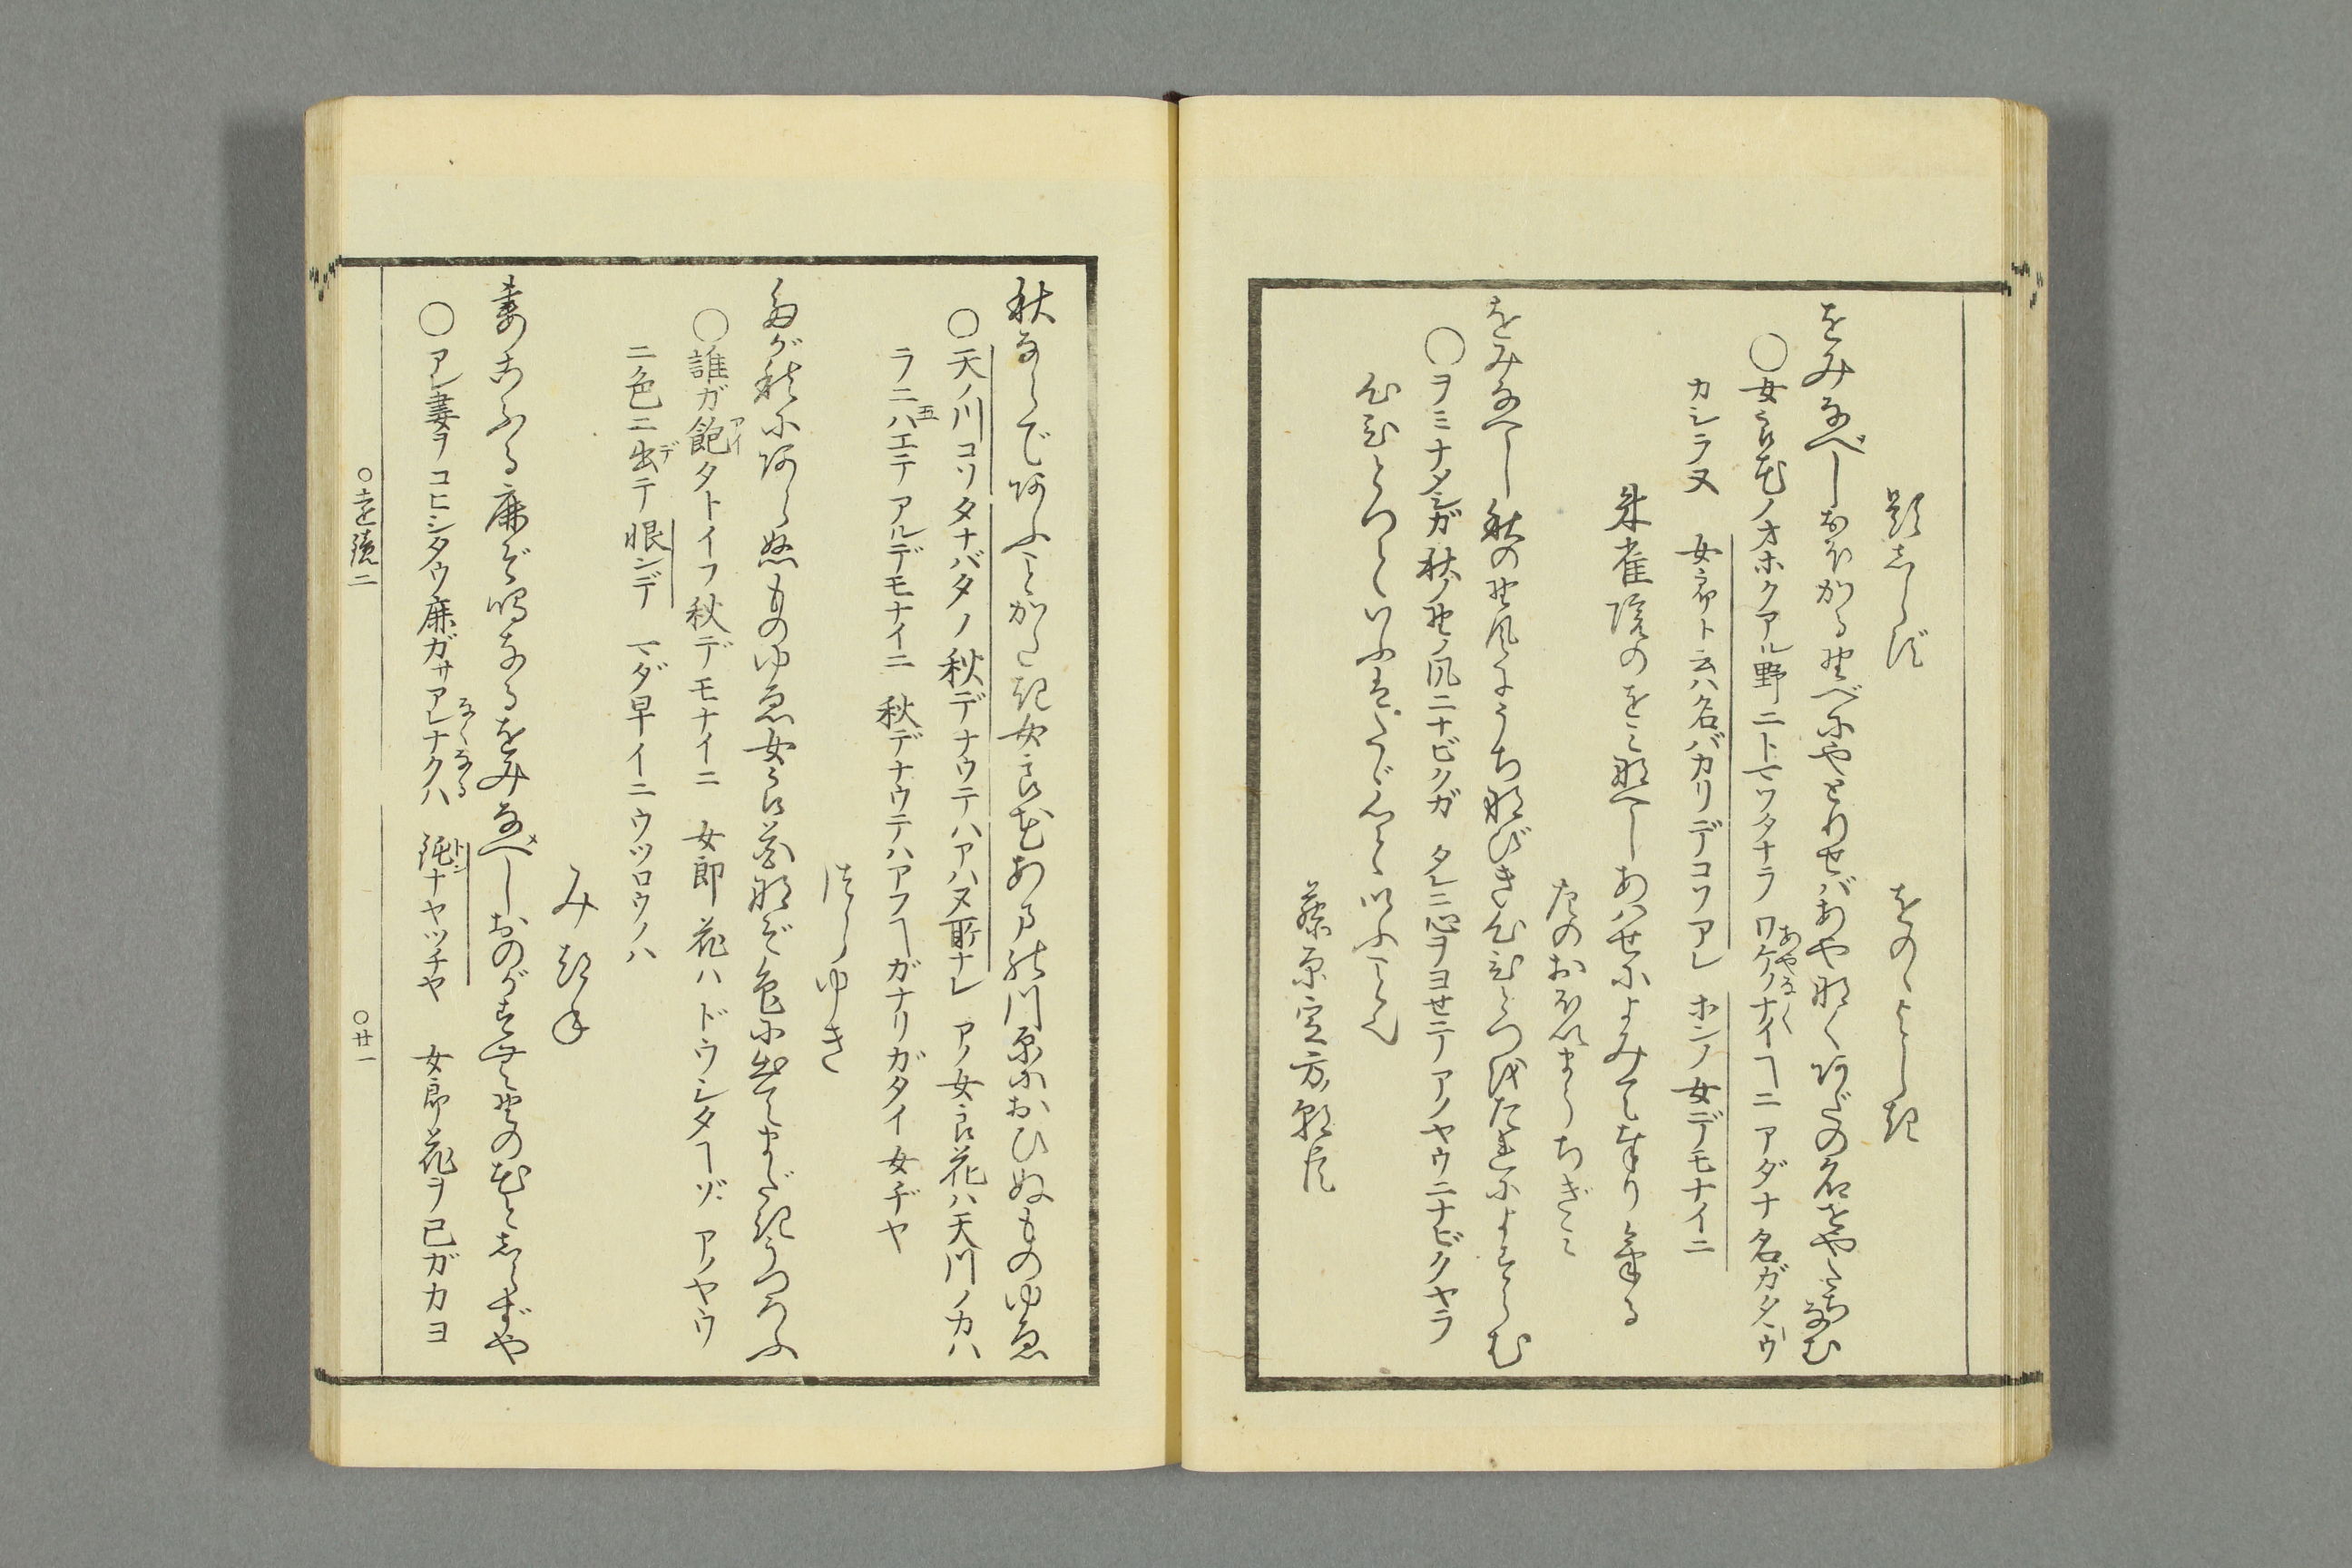 題しらず　をのゝよし木
をみなべしおほかる野べにやどりせばあやなくあだの名をやたちなむ
○女郎花ノオホクアル野ニトマツタナラ ワケノナイヿニアダナ名ガタヽウ
あやなく
カシラヌ 女郎ト云ハ名バカリデコソアレ ホンノ女デモナイニ
朱雀院のをみなへしあはせによみて奉りける
左のおほいまうちぎみ
をみなへし秋の野風にうちなびき心ひとつをたれによすらむ
○ヲミナメシガ秋ノ野ノ風ニナビクガ タレニ心ヲヨセテアノヤウニナビクヤラ
心ひとつといふはたゞ心といふこと也
藤原定方朝臣
秋ならであふことかたき女郎花あまの川原におひぬものゆゑ
○天ノ川コソ タナバタノ秋デナウテハアハヌ所ナレ アノ女郎花ハ天川ノカハ
ラニハエテアルデモナイニ 秋デナウテハアフヿガナリガタイ女ヂヤ
つらゆき
たが秋にあらぬものゆゑ女郎花なぞ色に出てまだきうつろふ
○誰ガ飽タトイフ秋デモナイニ 女郎花ハドウシタヿゾ アノヤウ
アイ
ニ色ニ出テ恨ンデ マダ早イニウツロウノハ
デ
みつね
妻こふる鹿ぞ鳴なるをみなべしおのがすむ野の花としらずや
○アレ妻ヲコヒシタウ鹿ガサアレナクハ 鈍ナヤツヂヤ 女郎花ヲ己ガカヨ
なくなる
ドン
○遠鏡二　○廿一